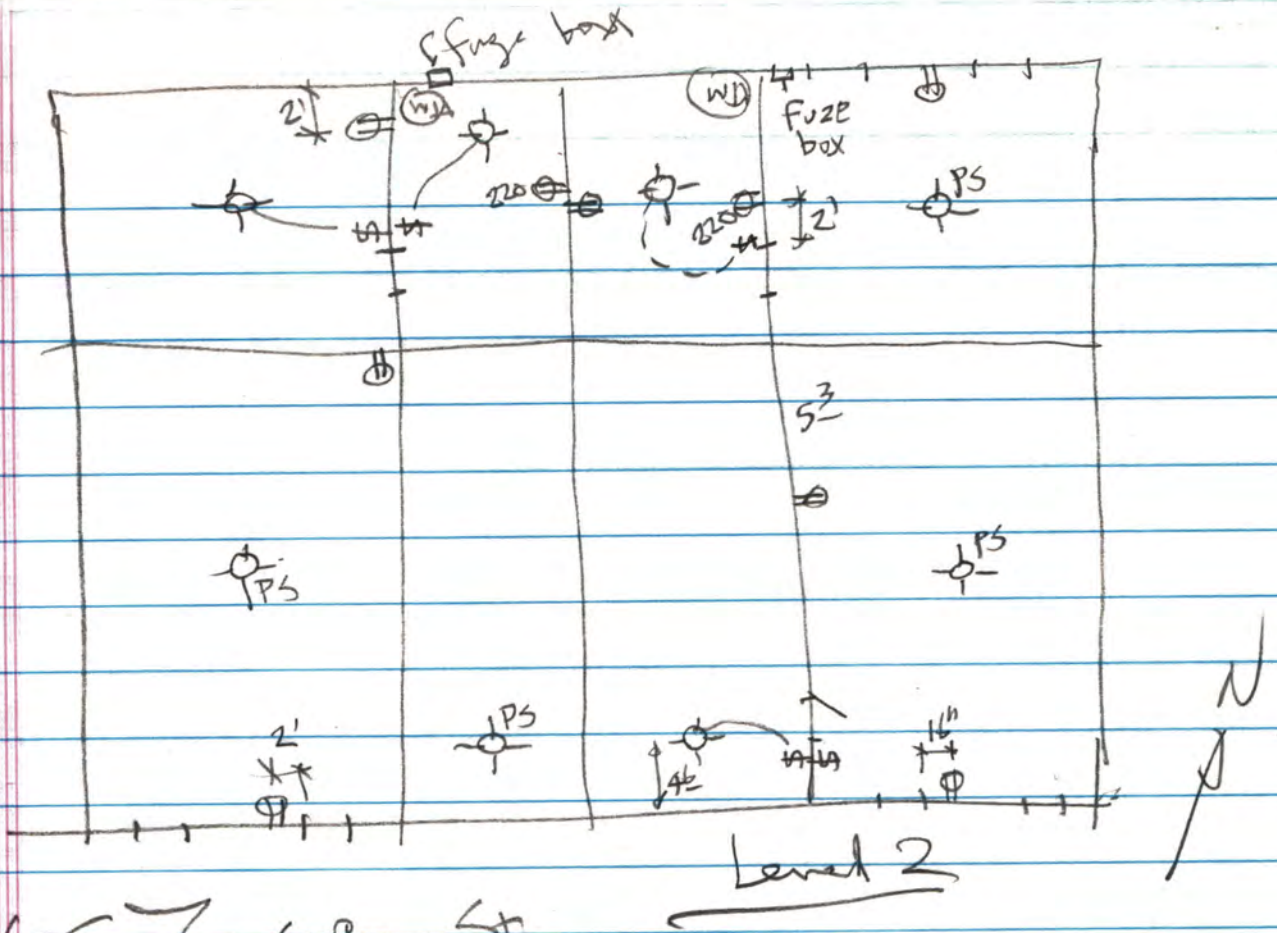 fuze box
2'
WD
WD
fuze
box
220
220
2'
PS
5 3
PS
PS
2'
PS
16"
Level 2
N
St